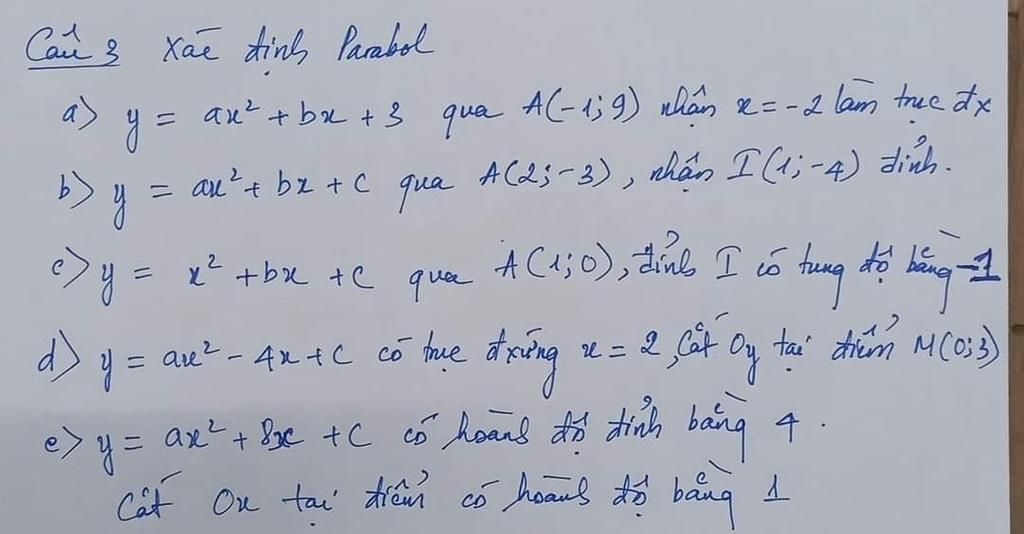 Câu 3 Xác định Parabol
a) y = ax² + bx + 3 qua A(-1; 9) nhận x = -2 làm trục đx
b) y = ax² + bx + c qua A(2; -3), nhận I(1; -4) đỉnh.
c) y = x² + bx + c qua A(1; 0), đỉnh I có tung độ bằng -1
d) y = ax² - 4x + c có trục đxứng x = 2, Cắt Oy tại điểm M(0; 3)
e) y = ax² + 8x + c có hoành độ đỉnh bằng 4.
Cắt Ox tại điểm có hoành độ bằng 1